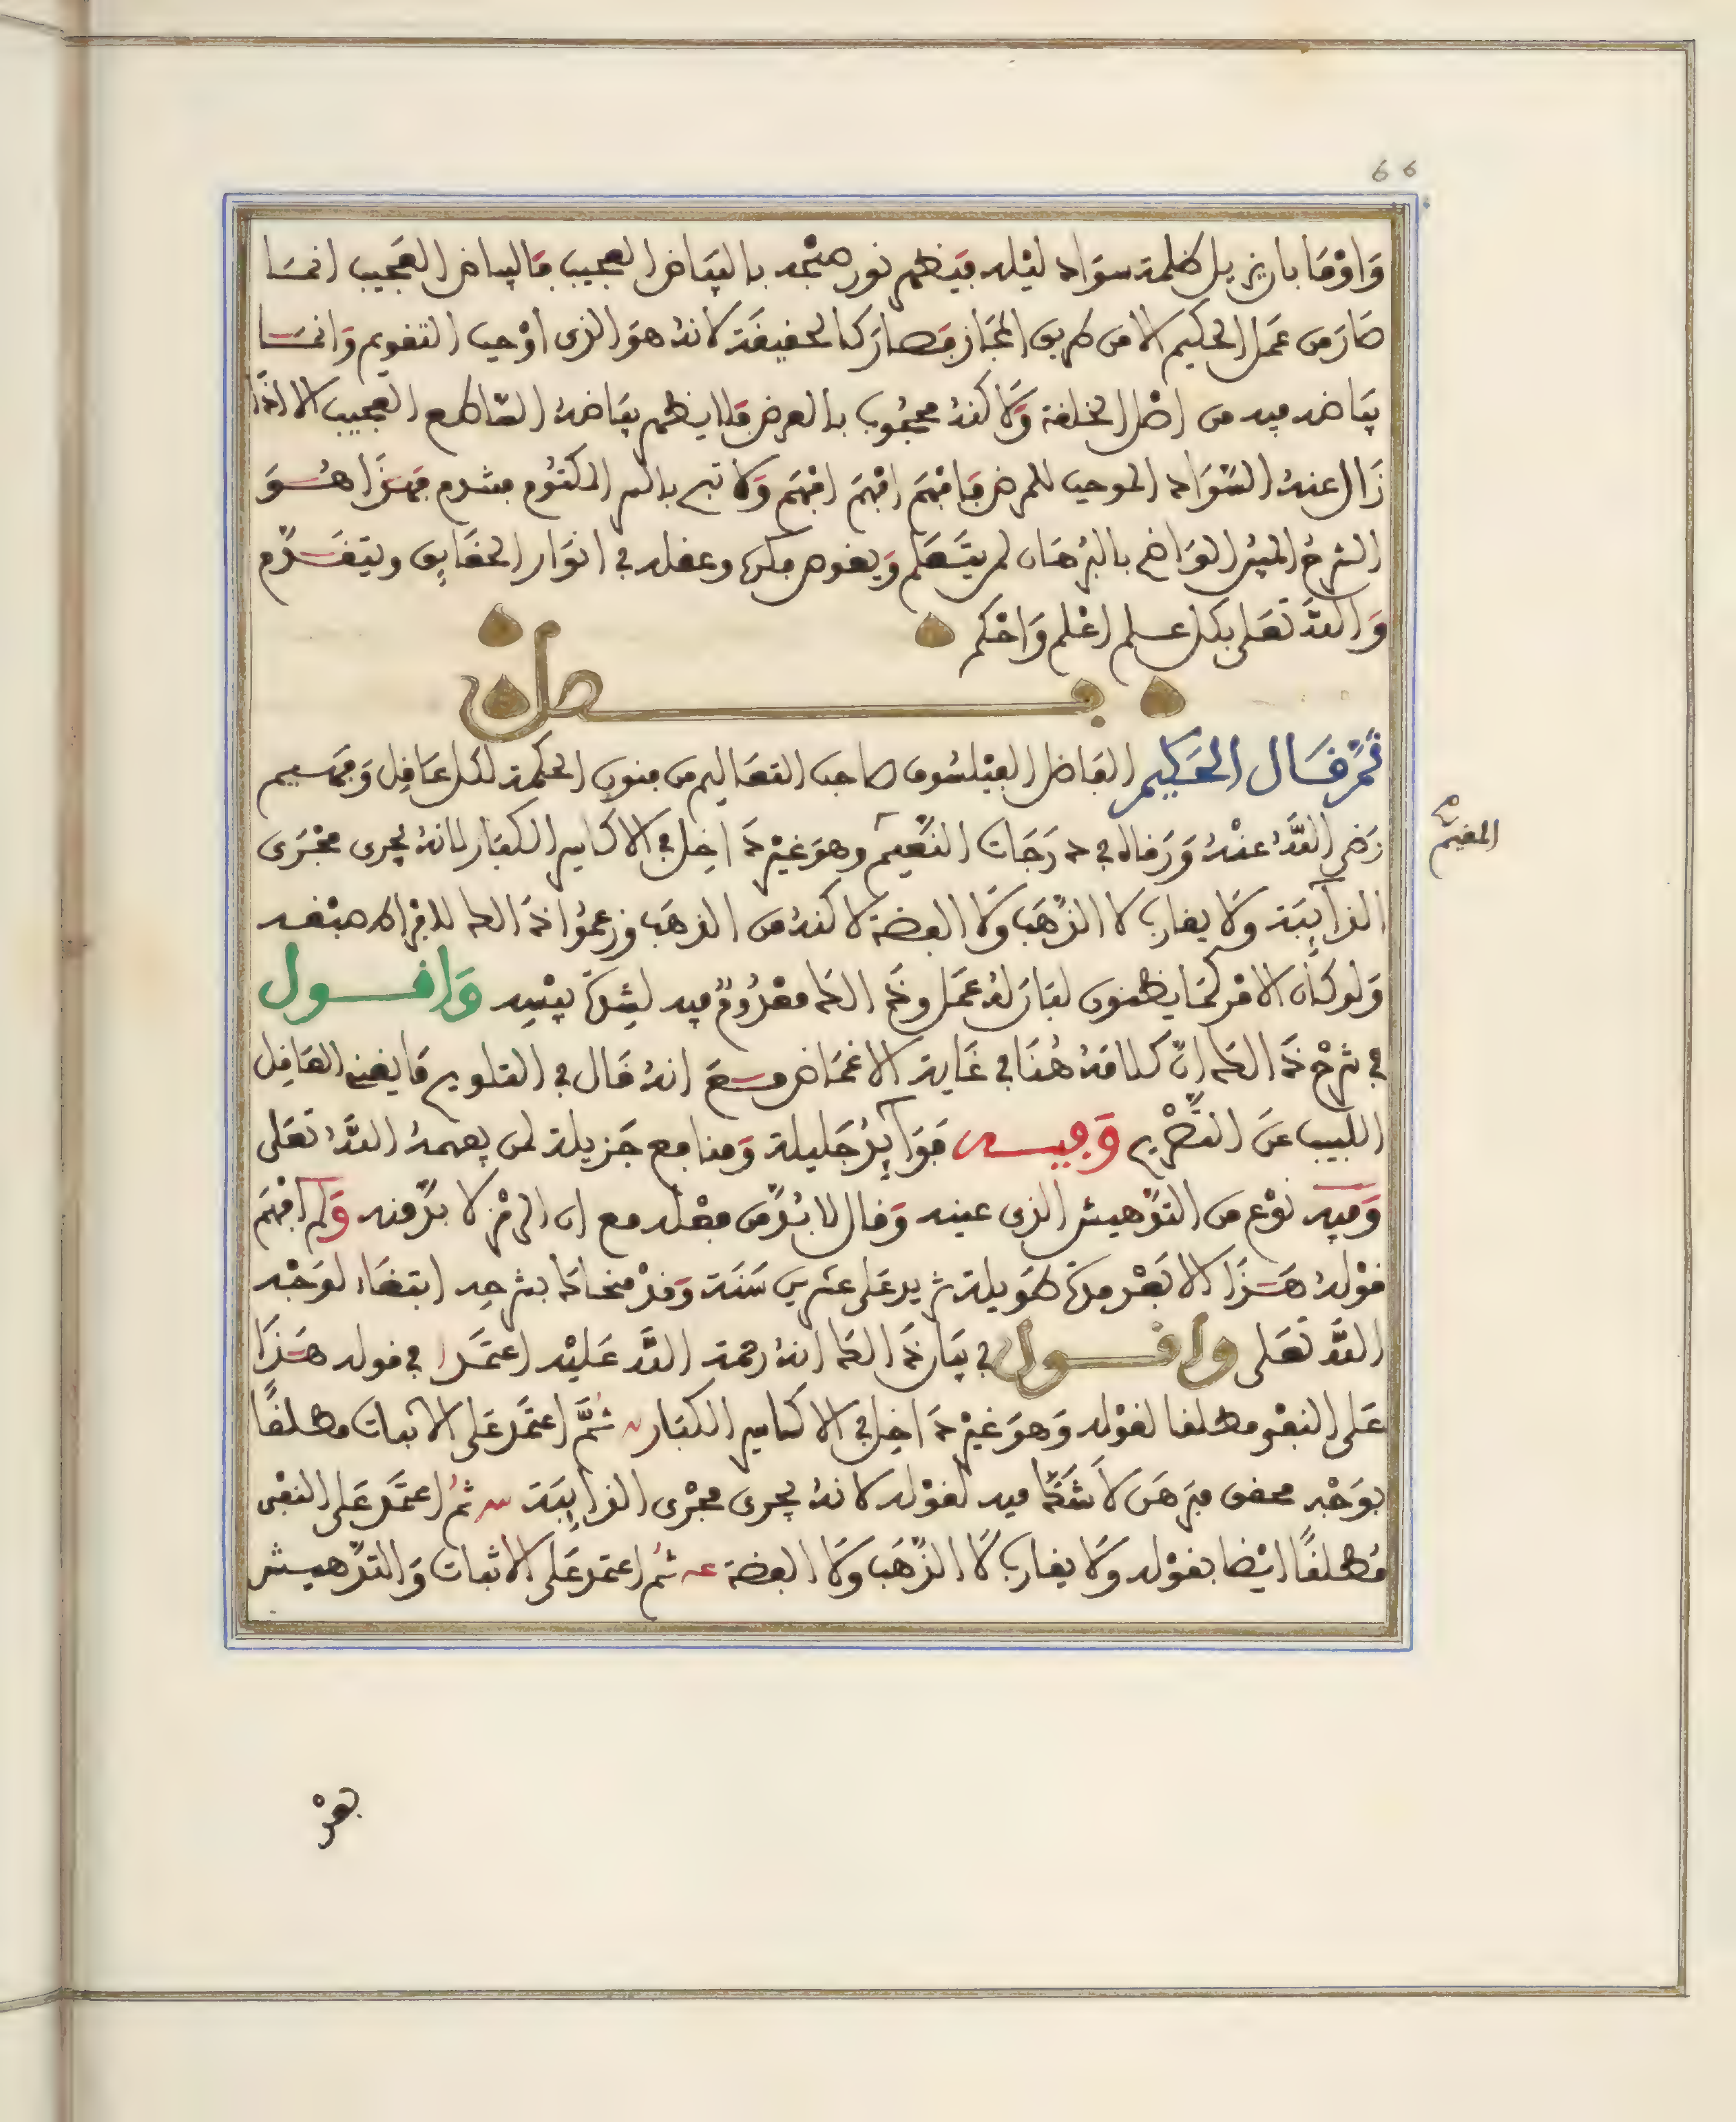 66
وَاوْمَا بان يزيل ظلمة سواد ليله فيظهر نور صبْحه بالبيَاض العجيب فالبياض العَجيب انمـا
صَار من عمَل الحكيم الا من طريق المجَاز فصار كالحقيقَة لانهُ هوَ الذى اوْجب التقويم وَانمـا
بيَاضه فيه من اصْل الخلقة وَلاكنهُ محجُوب بالعرض فلا يظهر بيَاضهُ السَّاطع العَجيب الا اذا
زَال عنهُ السَّوَاد الموجب للمرض فافهَم افهَم افهَم وَلا تبح بالسر المكتوم فتندم فهـذا هُـوَ
الشرحُ المبيُن الوَاضح بالبُرهَان لمن يتـعَلم وَيغوص بفكره وعقله في انوَار الحقَايق ويتقـدَّم
وَاللهُ تعَلى بكل علم اعْلم وَاحْكم
فـصل
ثمَّ قَـال الحَكيم الفاضل الفيْلسُوف صاحب التعَاليم من فنون الحكمة لكل عَاقِل وَفهـيم
رَضى اللَّهُ عنْهُ وَرقاه في درَجَات النَّعيم وهوَ غيْر دَاخِل في الاكاسير الكبَار لانهُ يجرى مجْرَى
المقيم
الذآيبَة وَلا يقارب لا الذَّهَب وَلا الفضة لاكنهُ من الذهَب وزعمُوا ذَالك لافرَاط صبْغه
وَلو كَان الامْر كمَا يظنون لبَان لهُ عمَل وذَالك معْدُومٌ فيه لشِدَّة يبْسِه وَاقـول
في شرْح ذَالك انَّ كلامهُ هُنَا في غَاية الاغمَاض مـعَ انهُ قَال في التلويح مَا يغنى العَاقِل
اللَّبيب عنَ التَّصْريح وَفيـه فوَآيدُ جَليلة وَمنافع جَزيلة لمن يفهمهُ اللَّهُ تعَلى
وَفيه نوْع من التدْهيش الذى عينه وَقال لا بُدَّ من فعْله مع ان الرمْز لا بدَّ منه وَلم افْهَم
قوْلهُ هَـذَا الا بَعْد مدَّة طَويلة تزيد عَلى عشرين سَنَة وَقدْ منحَاكَا بشرحِه ابتغَاء لوَجْه
اللَّه تعَلى وَاقـول في بيَان ذَالك انهُ رحمة اللَّه عَليْه اعتمَد في قوله هَـذَا
عَلى النفى مطلقا لقوْله وَهوَ غيْر دَاخِل في الاكاسير الكبَار ثُمَّ اعتمَد عَلى الاثبات مطلقًا
بوَجْه محقق مبَرهَن لا شَكَّ فيه لقوْله لانهُ يجرى مجْرَى الذآيبَة ثمُ اعتمَد عَلى النفْى
مُطلقًا ايْضا بقوْله وَلا يقارب لَا الذَّهَب وَلا الفضة ثمُ اعتمَد عَلى الاثبات وَالتدْهيش
بعْد